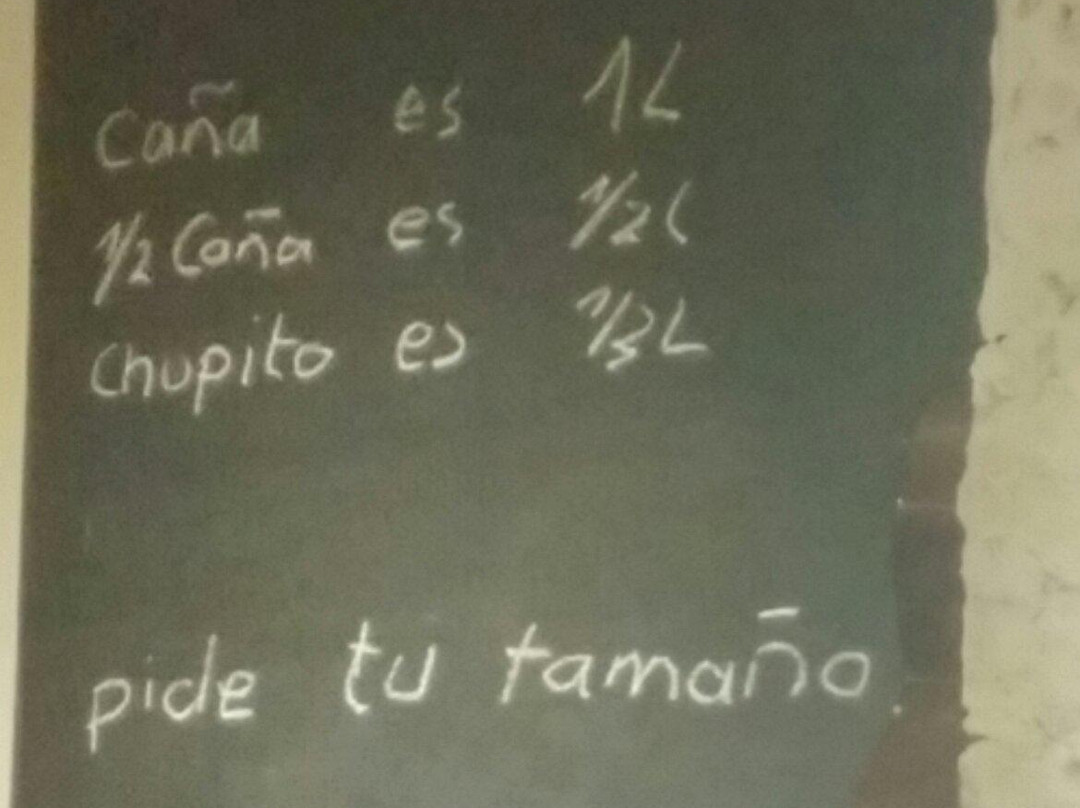 Caña es 1L
1/2 Caña es 1/2L
Chupito es 1/3L
pide tu tamaño.